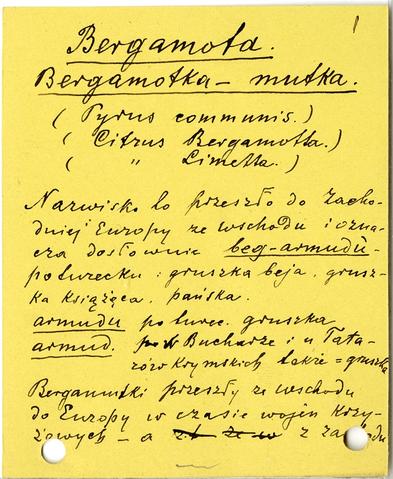 1
Bergamota.
Bergamotka – mutka.
( Pyrus communis. )
( Citrus Bergamotta. )
( " Limetta. )
Nazwisko to przeszło do Zacho-
dniej Europy ze wschodu i ozna-
cza dosłownie beg-armudů-
po turecku : gruszka beja, grusz-
ka książęca, pańska.
armudu po turec. gruszka
armud. w Bucharze i u Tata-
rów Krymskich także = gruszka
Bergamutki przeszły ze wschodu
do Europy w czasie wojen Krzy-
żowych – a z zachodu